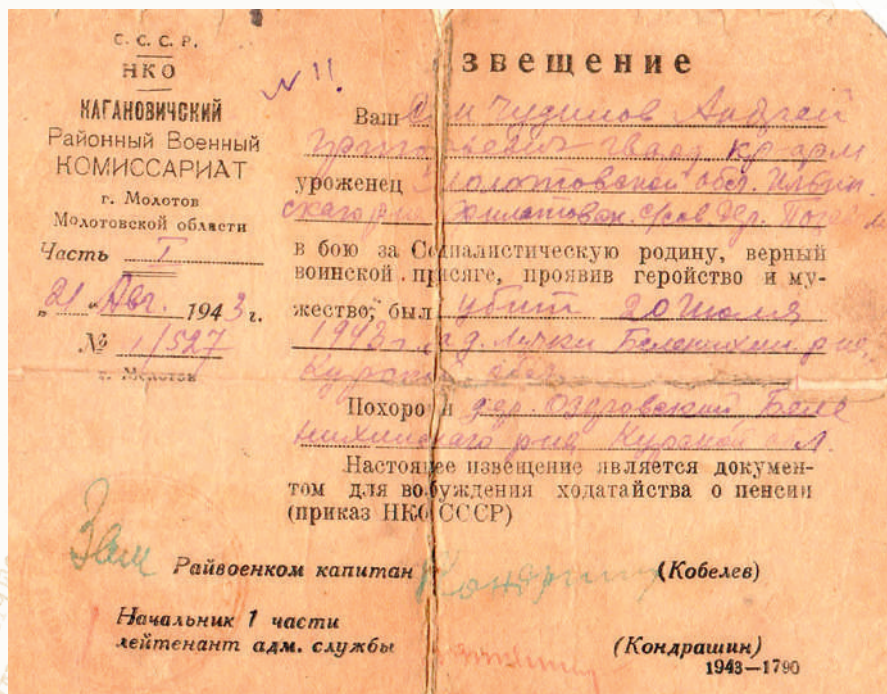 С. С. С. Р.
НКО
КАГАНОВИЧСКИЙ
Районный Военный
КОМИССАРИАТ
г. Молотов
Молотовской области
Часть I
"21" Авг. 1943 г.
№ 1/527
г. Молотов
N 11.
звещение
Ваш Сын Чудинов Андрей
Григорьевич гвард. кр-арм
уроженец Молотовской обл. Ильин
скаго р-на с/сов дер.
в бою за Социалистическую родину, верный
воинской присяге, проявив геройство и му-
жество, был убит 20 Июля
1943 г. д. Лучки Беленихин. р-на,
Курской обл.
Похоро н дер. Озеровский Беле
нихинскаго р-на Курской обл.
Настоящее извещение является докумен-
том для возбуждения ходатайства о пенсии
(приказ НКО СССР)
Зам Райвоенком капитан (Кобелев)
Начальник 1 части
лейтенант адм. службы (Кондрашин)
1943—1790